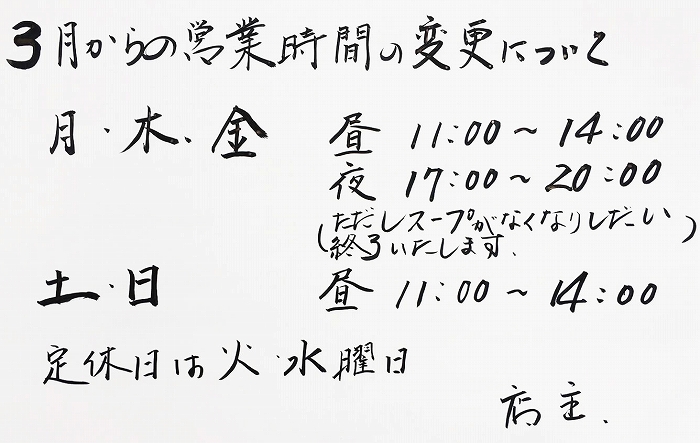 3月からの営業時間の変更について
月・木・金 昼 11:00～14:00
夜 17:00～20:00
(ただしスープがなくなりしだい
終了いたします.)
土・日 昼 11:00～14:00
定休日は火・水曜日
店主.